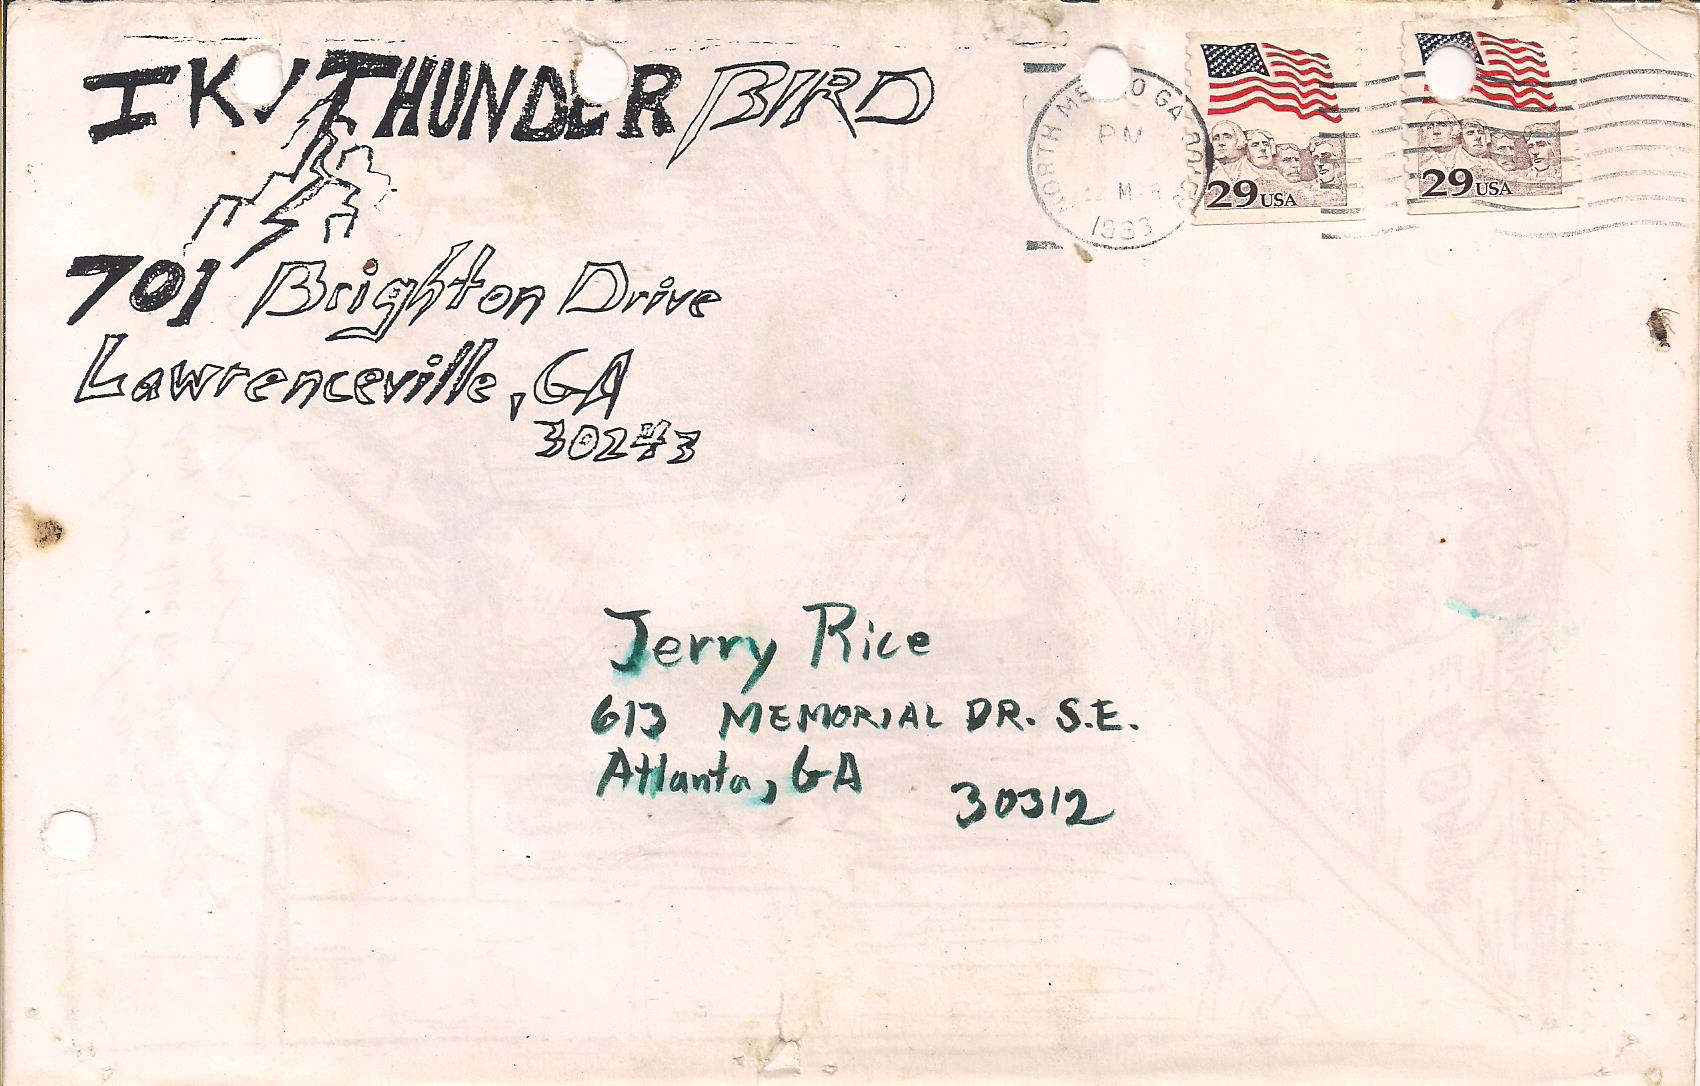 THUNDER BIRD
701 Brighton Drive
Lawrenceville, GA
30243
NORTH ME O GA
PM
1993
29 USA
29 USA
Jerry Rice
613 MEMORIAL DR. S.E.
Atlanta, GA
30312